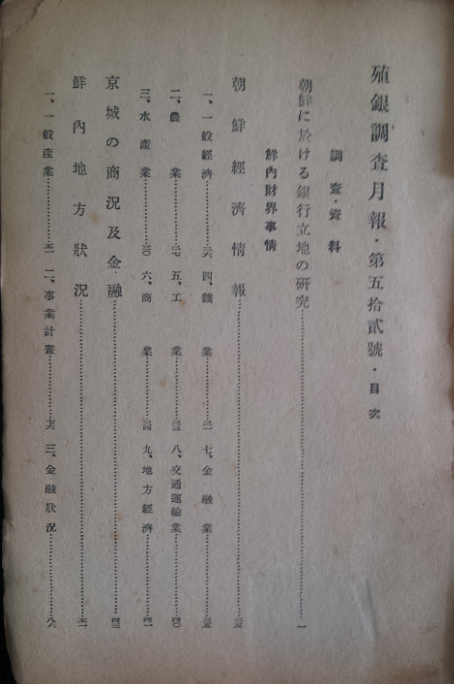 殖銀調査月報・第五拾貳號・目次
調査・資料
朝鮮に於ける銀行立地の研究……一
鮮內財界事情
朝鮮經濟情報……三五
一、一般經濟……三六 四、鑛業……三一 七、金融業……三五
二、農業……三七 五、工業……三三 八、交通運輸業……四〇
三、水產業……三〇 六、商業……三四 九、地方經濟……四一
京城の商況及金融……四三
鮮內地方狀況……五一
一、一般產業……五一 二、事業計畫……六六 三、金融狀況……八六